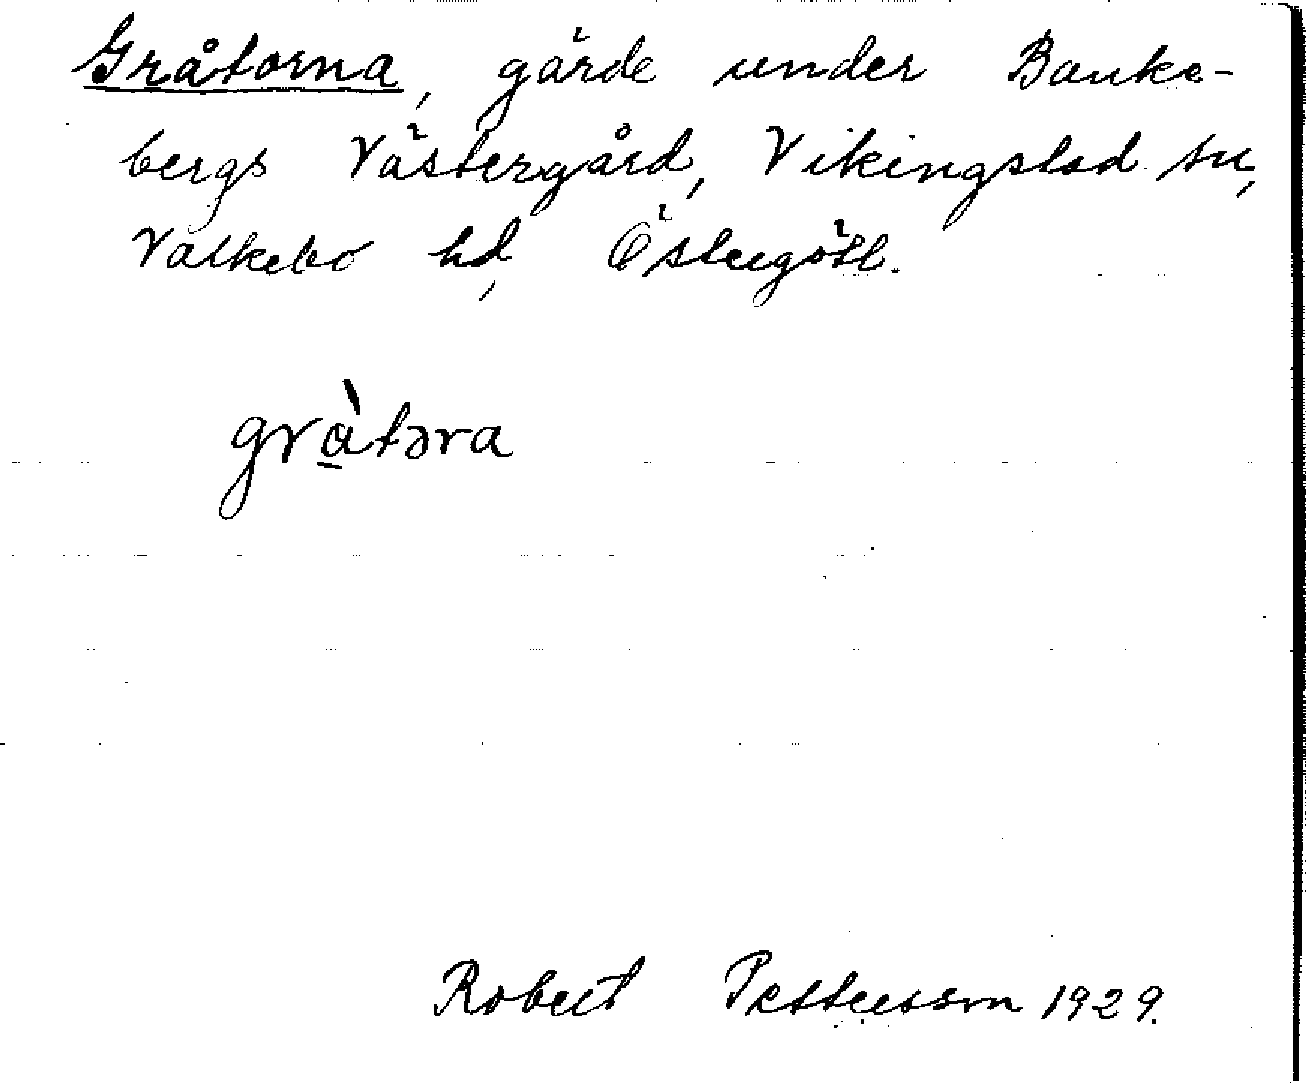 Gråtorna, gärde under Banke-
bergs Västergård, Vikingstad sn,
Valkebo hd, Östergötl.
grà̠təra
Robert Pettersson 1929.